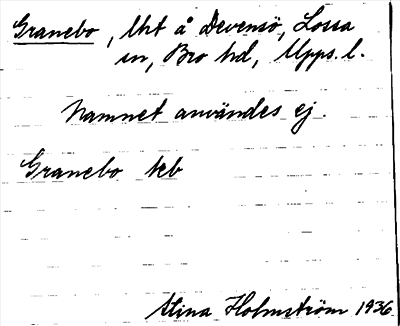 Granebo, lht å Devensö, Lossa
sn, Bro hd, Upps. l.
Namnet användes ej.
Granebo teb
Stina Holmström 1936